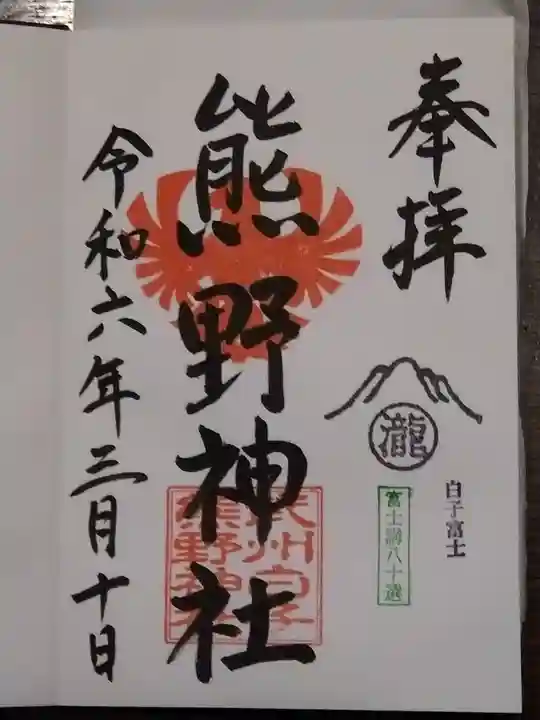 奉拝
瀧
白子富士
富士講八十選
熊野神社
武州白子
熊野神社
令和六年三月十日